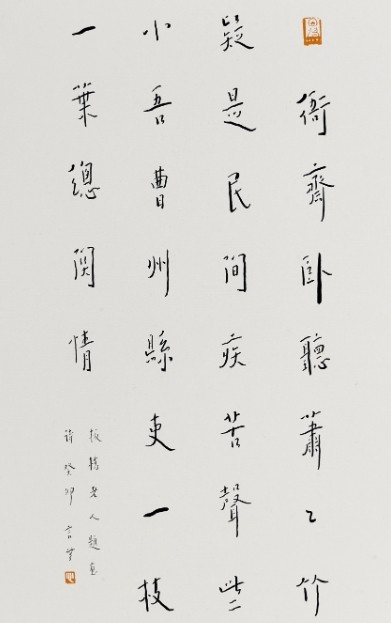 衙齋卧聽蕭〻竹
疑是民間疾苦聲些〻
小吾曹州縣吏一枝
一葉總関情
板橋老人題畫
詩癸卯言生